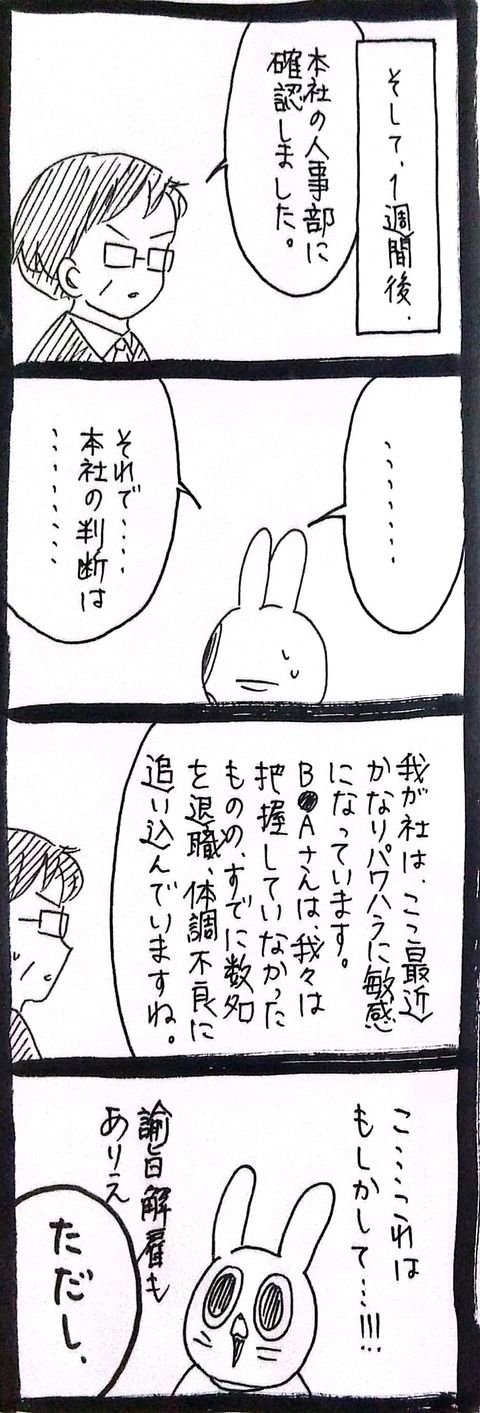 そして、1週間後.
本社の人事部に
確認しました。
、、、、、、、
それで、、、、
本社の判断は
、、、、、、、
我が社は、ここ最近
かなりパワハラに敏感
になっています。
B●Aさんは、我々は
把握していなかった
ものの、すでに数名
を退職、体調不良に
追い込んでいますね。
こ、、、これは
もしかして、、、!!!
諭旨解雇も
ありえ
ただし、